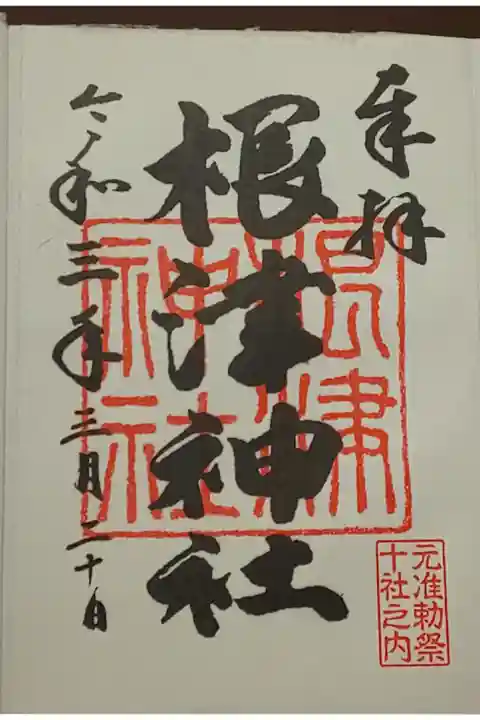 奉拝
根津神社
令和三年三月二十日
根津
神社
元准勅祭
十社之内